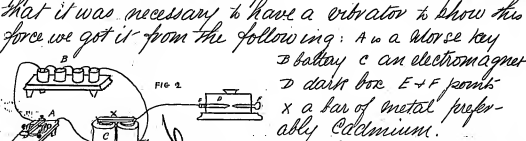 that it was necessary to have a vibrator to show this
force we got it from the following: A is a Morse key
B battery C an electromagnet
D dark box E + F points
X a bar of metal prefer-
ably Cadmium.
B
FIG 2
D
X
A
C